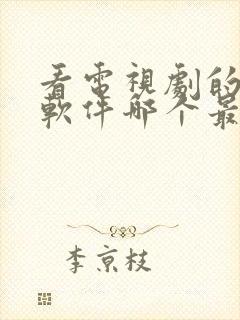 看電視劇的
軟件哪个最
李京枝